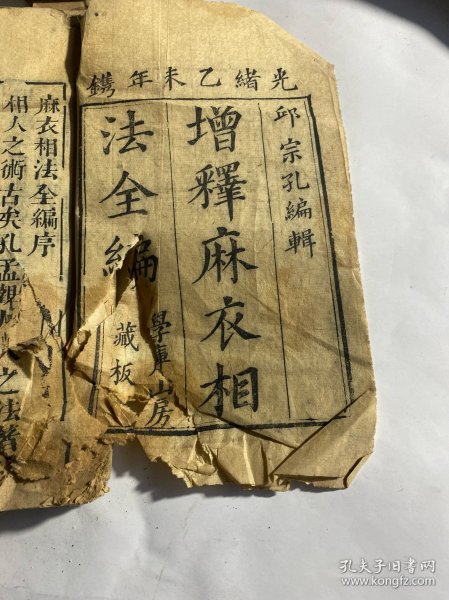 光緒乙未年鐫
邱宗孔編輯
增釋麻衣相
法全編
學庫山房
藏板
麻衣相法全編序
相人之術古矣孔孟觀
之法
孔夫子旧书网
www.kongfz.com